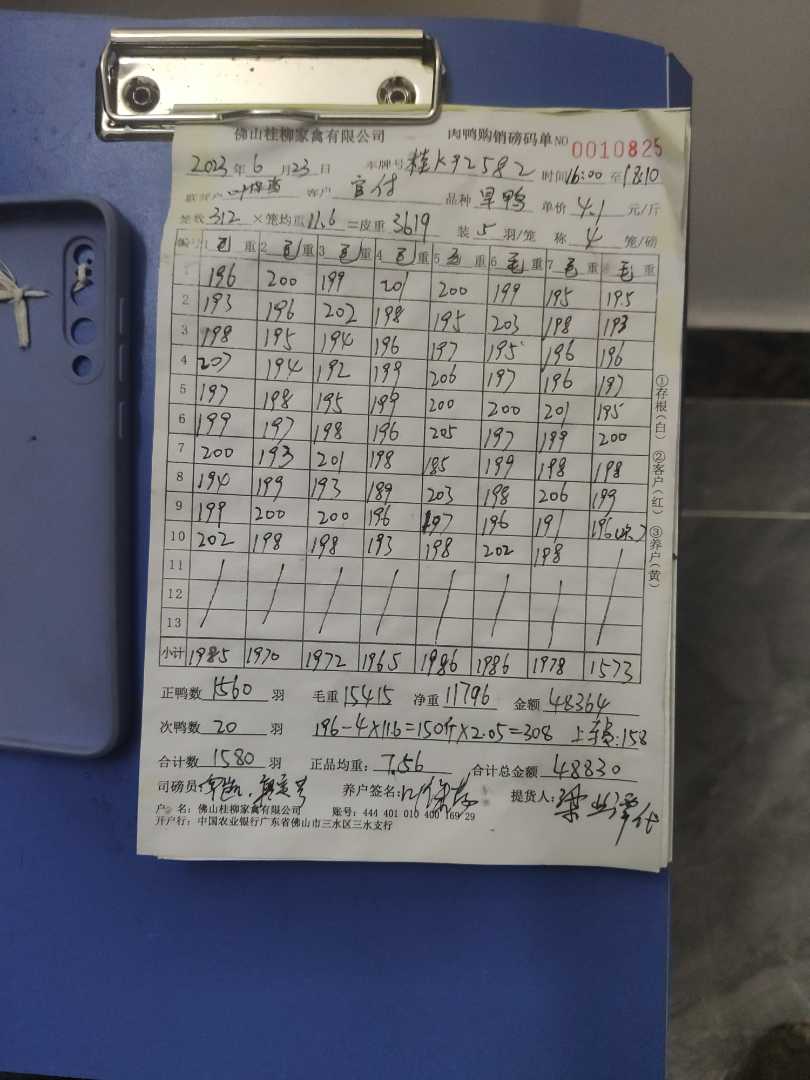 佛山桂柳家禽有限公司 肉鸭购销磅码单 NO 0010825
2023年6月23日 车牌号 桂K92582 时间 16:00 至 18:10
客户 官付 品种 旱鸭 单价 4.1 元/斤
笼数 312 ×笼均重 11.6 =皮重 3619 装 5 羽/笼 称 4 笼/磅
编号 1 毛 重 2 毛 重 3 毛 重 4 毛 重 5 毛 重 6 毛 重 7 毛 重 8 毛 重
1 196 200 199 201 200 199 195 195
2 193 196 202 198 195 203 198 193
3 198 195 194 196 197 195 196 196
4 207 194 192 199 206 197 196 197
5 197 198 195 199 200 200 201 195
6 199 197 198 196 205 197 199 200
7 200 193 201 198 185 199 198 198
8 194 199 193 189 203 198 206 199
9 199 200 200 196 197 196 191 196(次)
10 202 198 198 193 198 202 198
11
12
13
小计 1985 1970 1972 1965 1986 1986 1978 1573
正鸭数 1560 羽 毛重 15415 净重 11796 金额 48364
次鸭数 20 羽 196-4×11.6=150斤×2.05=308 上车费:158
合计数 1580 羽 正品均重: 7.56 合计总金额 48830
司磅员: 养户签名: 提货人:
户 名: 佛山桂柳家禽有限公司 账号: 444 401 010 400 169 29
开户行: 中国农业银行广东省佛山市三水区三水支行
①存根(白) ②客户(红) ③养户(黄)